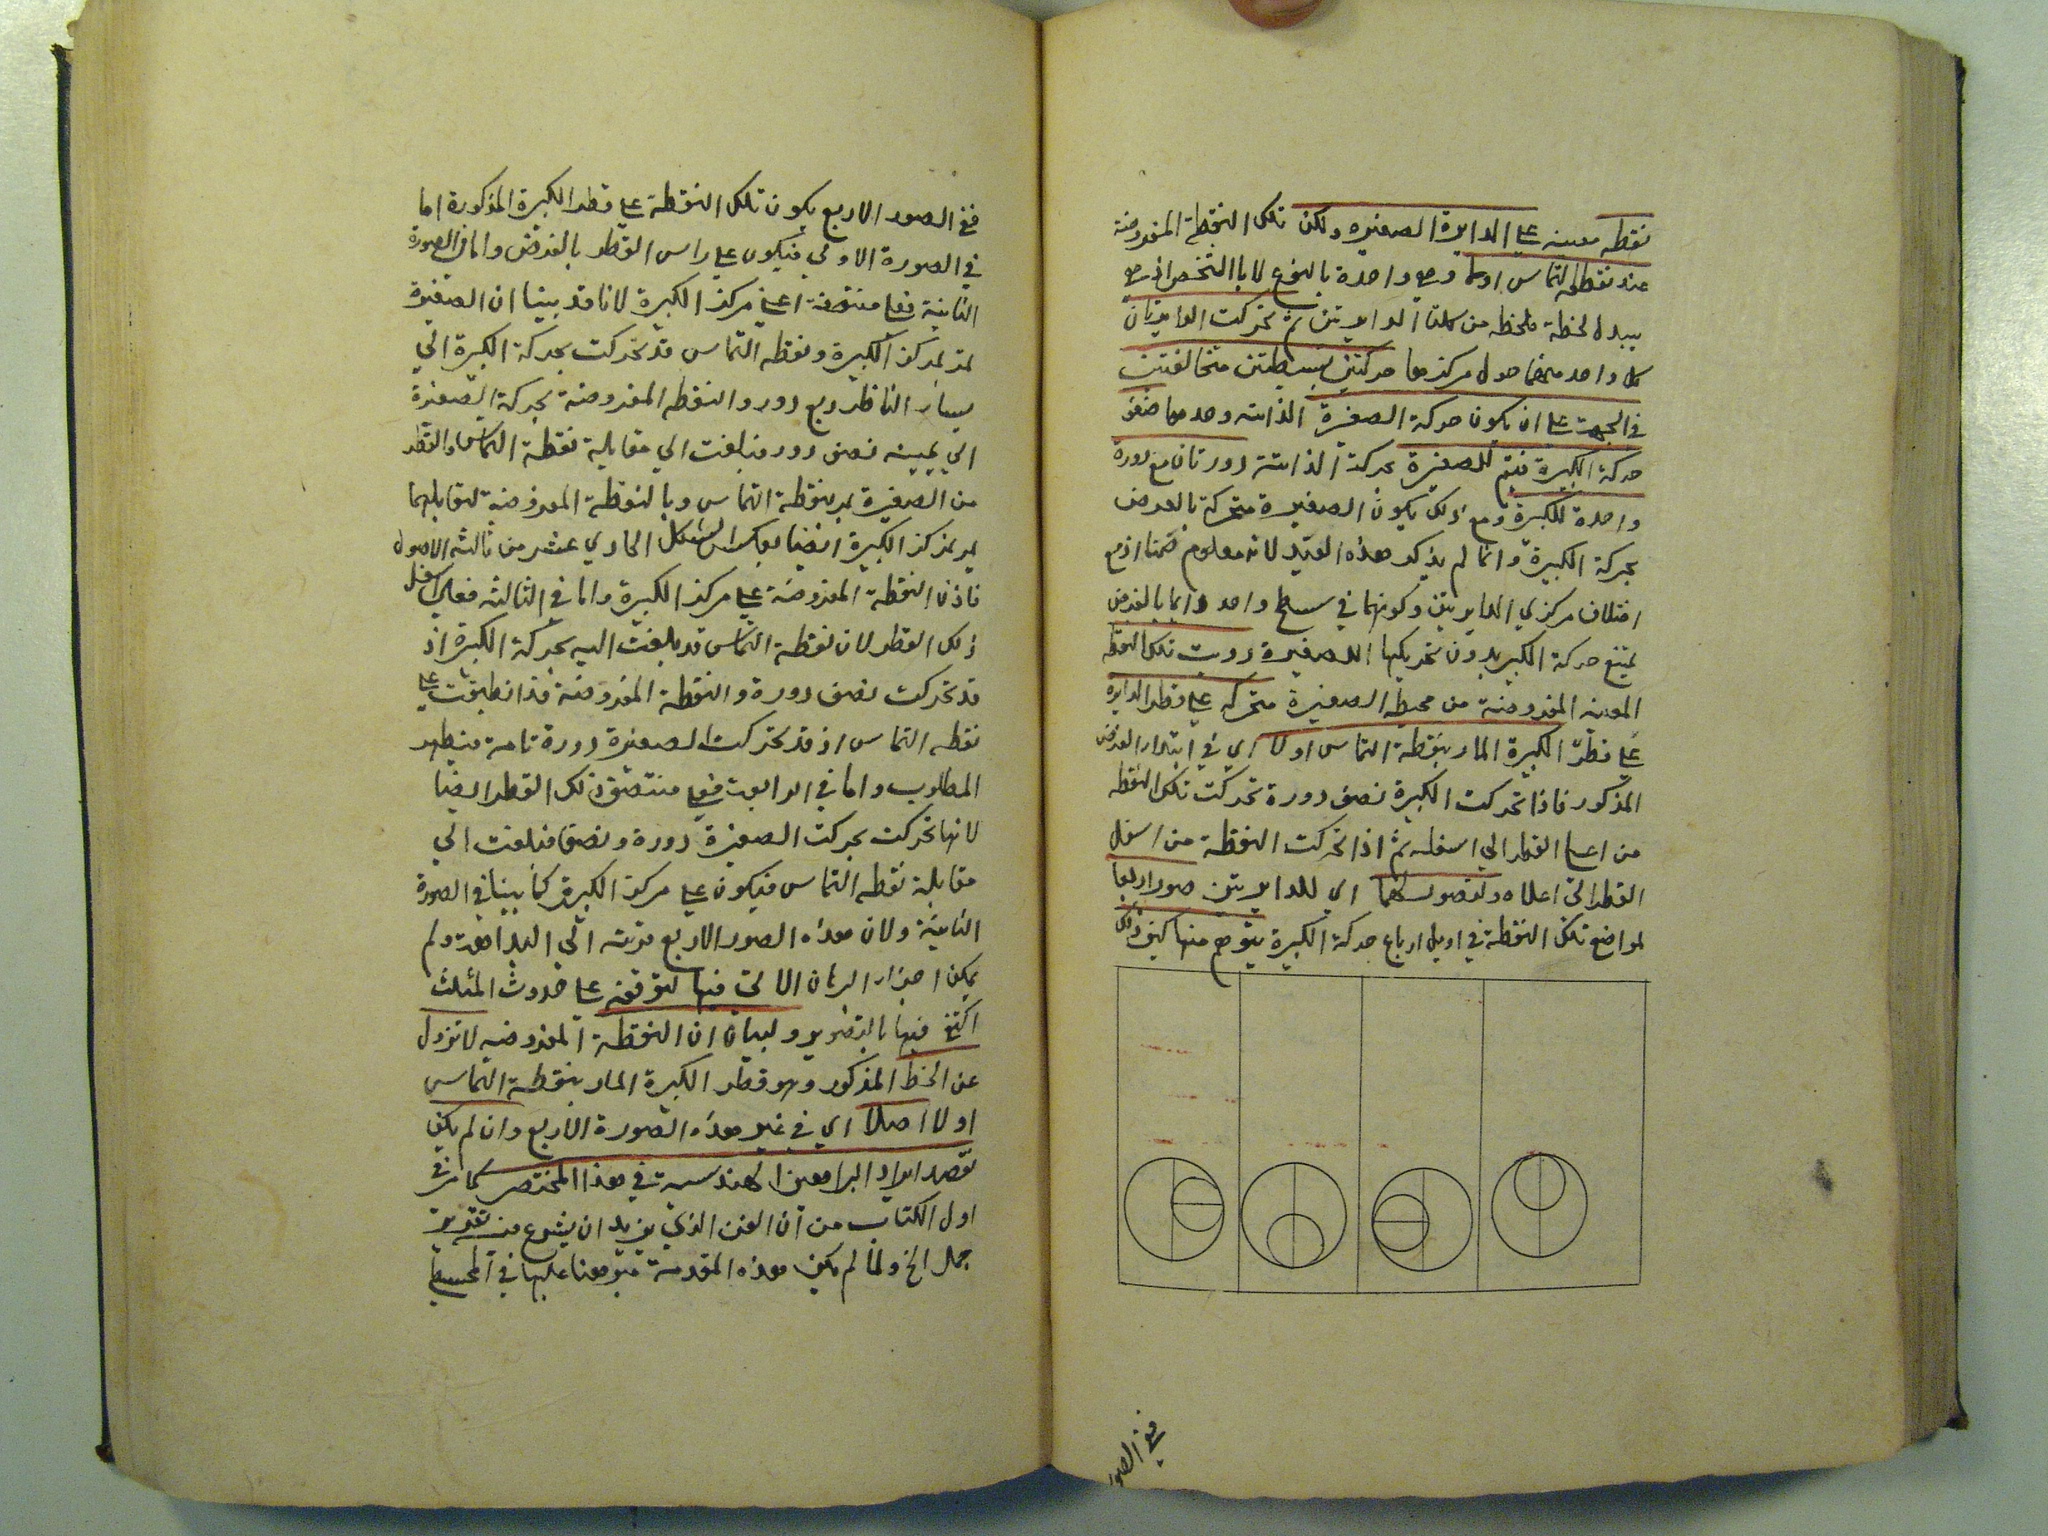 نقطه معينه على الدايرة الصغيره ولكن تلك النقطة المفروضة
عند نقطة التماس اولا وهي واحدة بالنوع لا بالشخص اذ هي
يتبدل لحظة فلحظه من كلتا الدايرتين ثم تحركت الدايرتان
كل واحد منهما حول مركزها حركتين بسيطتين متخالفتين
في الجهة على ان يكون حركة الصغيرة الذاتية وحدها ضعف
حركة الكبيرة فيتم للصغيرة بحركة الذاتية دورتان مع دورة
واحدة للكبيرة ومع ذلك يكون الصغيرة متحركة بالعرض
بحركة الكبيرة وانما لم يذكر هذه القيد لانه معلوم ضمنا اذ مع
اختلاف مركزي الدايرتين وكونهما في سطح واحد دايما بالفرض
يمتنع حركة الكبير بدون تحريكها الصغيرة رويت تلك النقطة
المعينه المفروضة من محيط الصغيرة متحركه على قطر الدايرة
على قطر الكبيرة المار بنقطة التماس اولا اي في ابتداء الفرض
المذكور فاذا تحركت الكبيرة نصف دورة تحركت تلك النقطه
من اعلى القطر الى اسفله ثم اذا تحركت النقطة من اسفل
القطر الى اعلاه ولتصور لهما اي للدايرتين صور اربعا
لمواضع تلك النقطة في اوايل ارباع حركة الكبيرة يتوهم منها كيف ذلك
ففي الصو
ففي الصور الاربع يكون تلك النقطة على قطر الكبيرة المذكورة اما
في الصورة الاولى فيكون على راس القطر بالفرض واما في الصورة
الثانية فعلى منتصفه اعني مركز الكبيرة لانا قد بينا ان الصغيرة
تمر بمركز الكبيرة ونقطه التماس قد تحركت بحركة الكبيرة الى
يسار الناظر ربع دور والنقطه المفروضة بحركة الصغيرة
الى يمينه نصف دور فبلغت الى مقابلة نقطة التماس والقطر
من الصغيرة يمر بنقطة التماس وبالنقطة المفروضة لتقابلهما
يمر بمركز الكبيرة ايضا بعكس الشكل الحادي عشر من ثالثة الاصول
فاذن النقطة المفروضة على مركز الكبيرة واما في الثالثه فعلى اسفل
ذلك القطر لان نقطة التماس قد بلغت اليه بحركة الكبيرة اذ
قد تحركت نصف دورة والنقطة المفروضة قد انطبقت على
نقطه التماس اذ قد تحركت الصغيرة دورة تامة فيظهر
المطلوب واما في الرابعة فعلى منتصف ذلك القطر ايضا
لانها تحركت بحركة الصغيرة دورة ونصفا فبلغت الى
مقابلة نقطه التماس فيكون على مركز الكبيرة كما بينا في الصورة
الثانية ولان هذه الصور الاربع قريبة الى البداهة ولم
يمكن اجراء البرهان الاتي فيها لتوقفه على حدوث المثلث
اكتفى فيها بالتصوير ولبيان ان النقطة المفروضه لا تزول
عن الخط المذكور وهو قطر الكبيرة المار بنقطة التماس
اولا اصلا اي في غير هذه الصورة الاربع وان لم يكن
قصد ايراد البراهين الهندسية في هذا المختصر كما مر في
اول الكتاب من ان الفن الذي يريد ان يشرع في تقرير
جمل الخ ولما لم يكن هذه المقدمة مبرهنا عليها في المجسطي